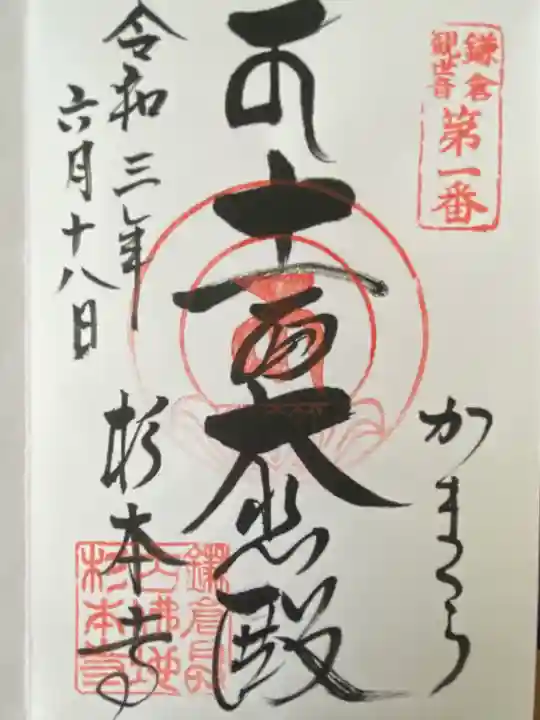 鎌倉
観世音
第一番
かまくら
十一面大悲殿
杉本寺
令和三年
六月十八日
杉本寺